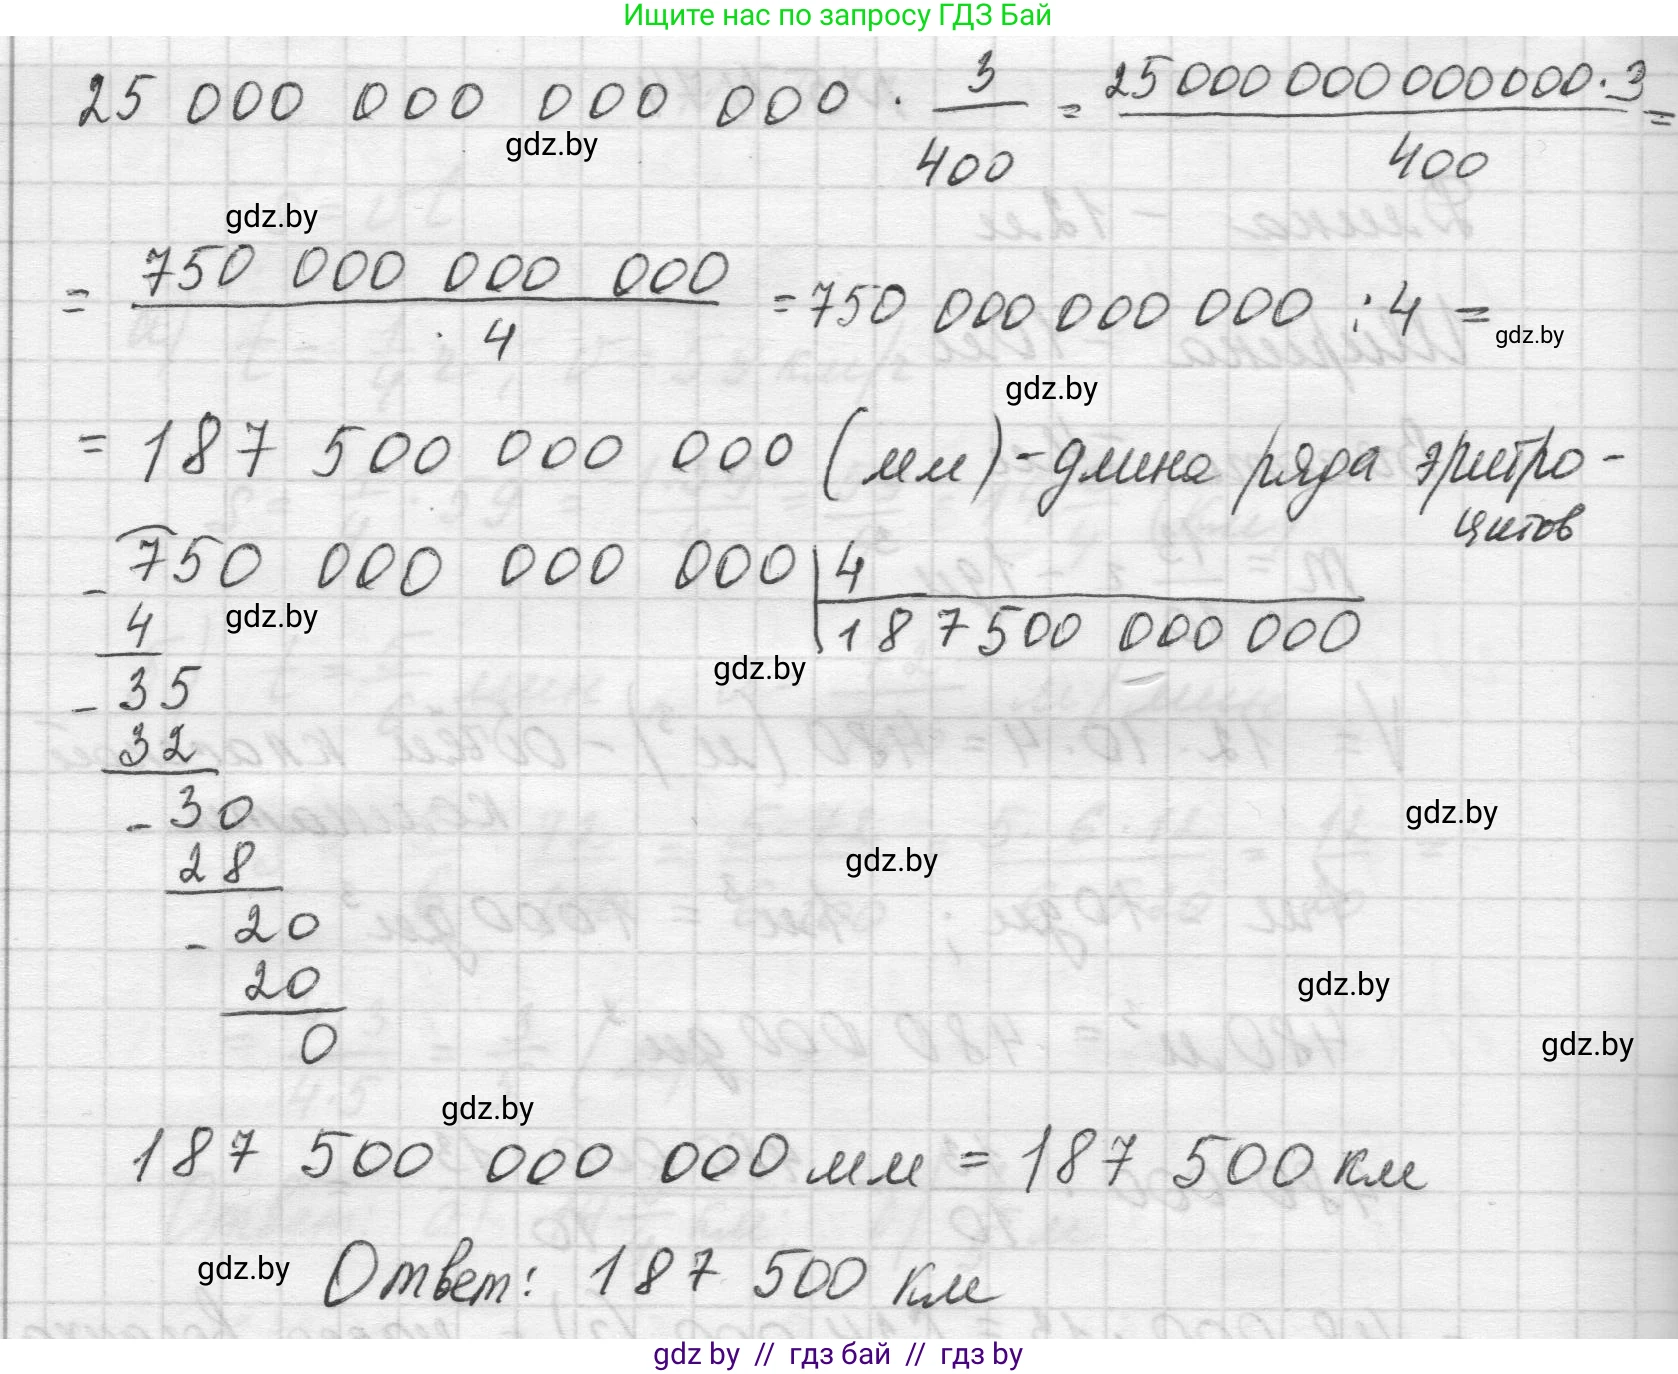 Ищите нас по запросу ГДЗ Бай
25 000 000 000 000 · 3/400 = 25 000 000 000 000 · 3/400 =
gdz.by
gdz.by
= 750 000 000 000/4 = 750 000 000 000 : 4 =
gdz.by
gdz.by
= 187 500 000 000 (мм) - длина ряда эритро-
цитов
- 750 000 000 000 | 4
4 187 500 000 000
gdz.by
gdz.by
- 35
32
- 30
gdz.by
28
gdz.by
- 20
20
gdz.by
0
gdz.by
gdz.by
187 500 000 000 мм = 187 500 км
gdz.by
Ответ: 187 500 км
gdz by // гдз бай // гдз by